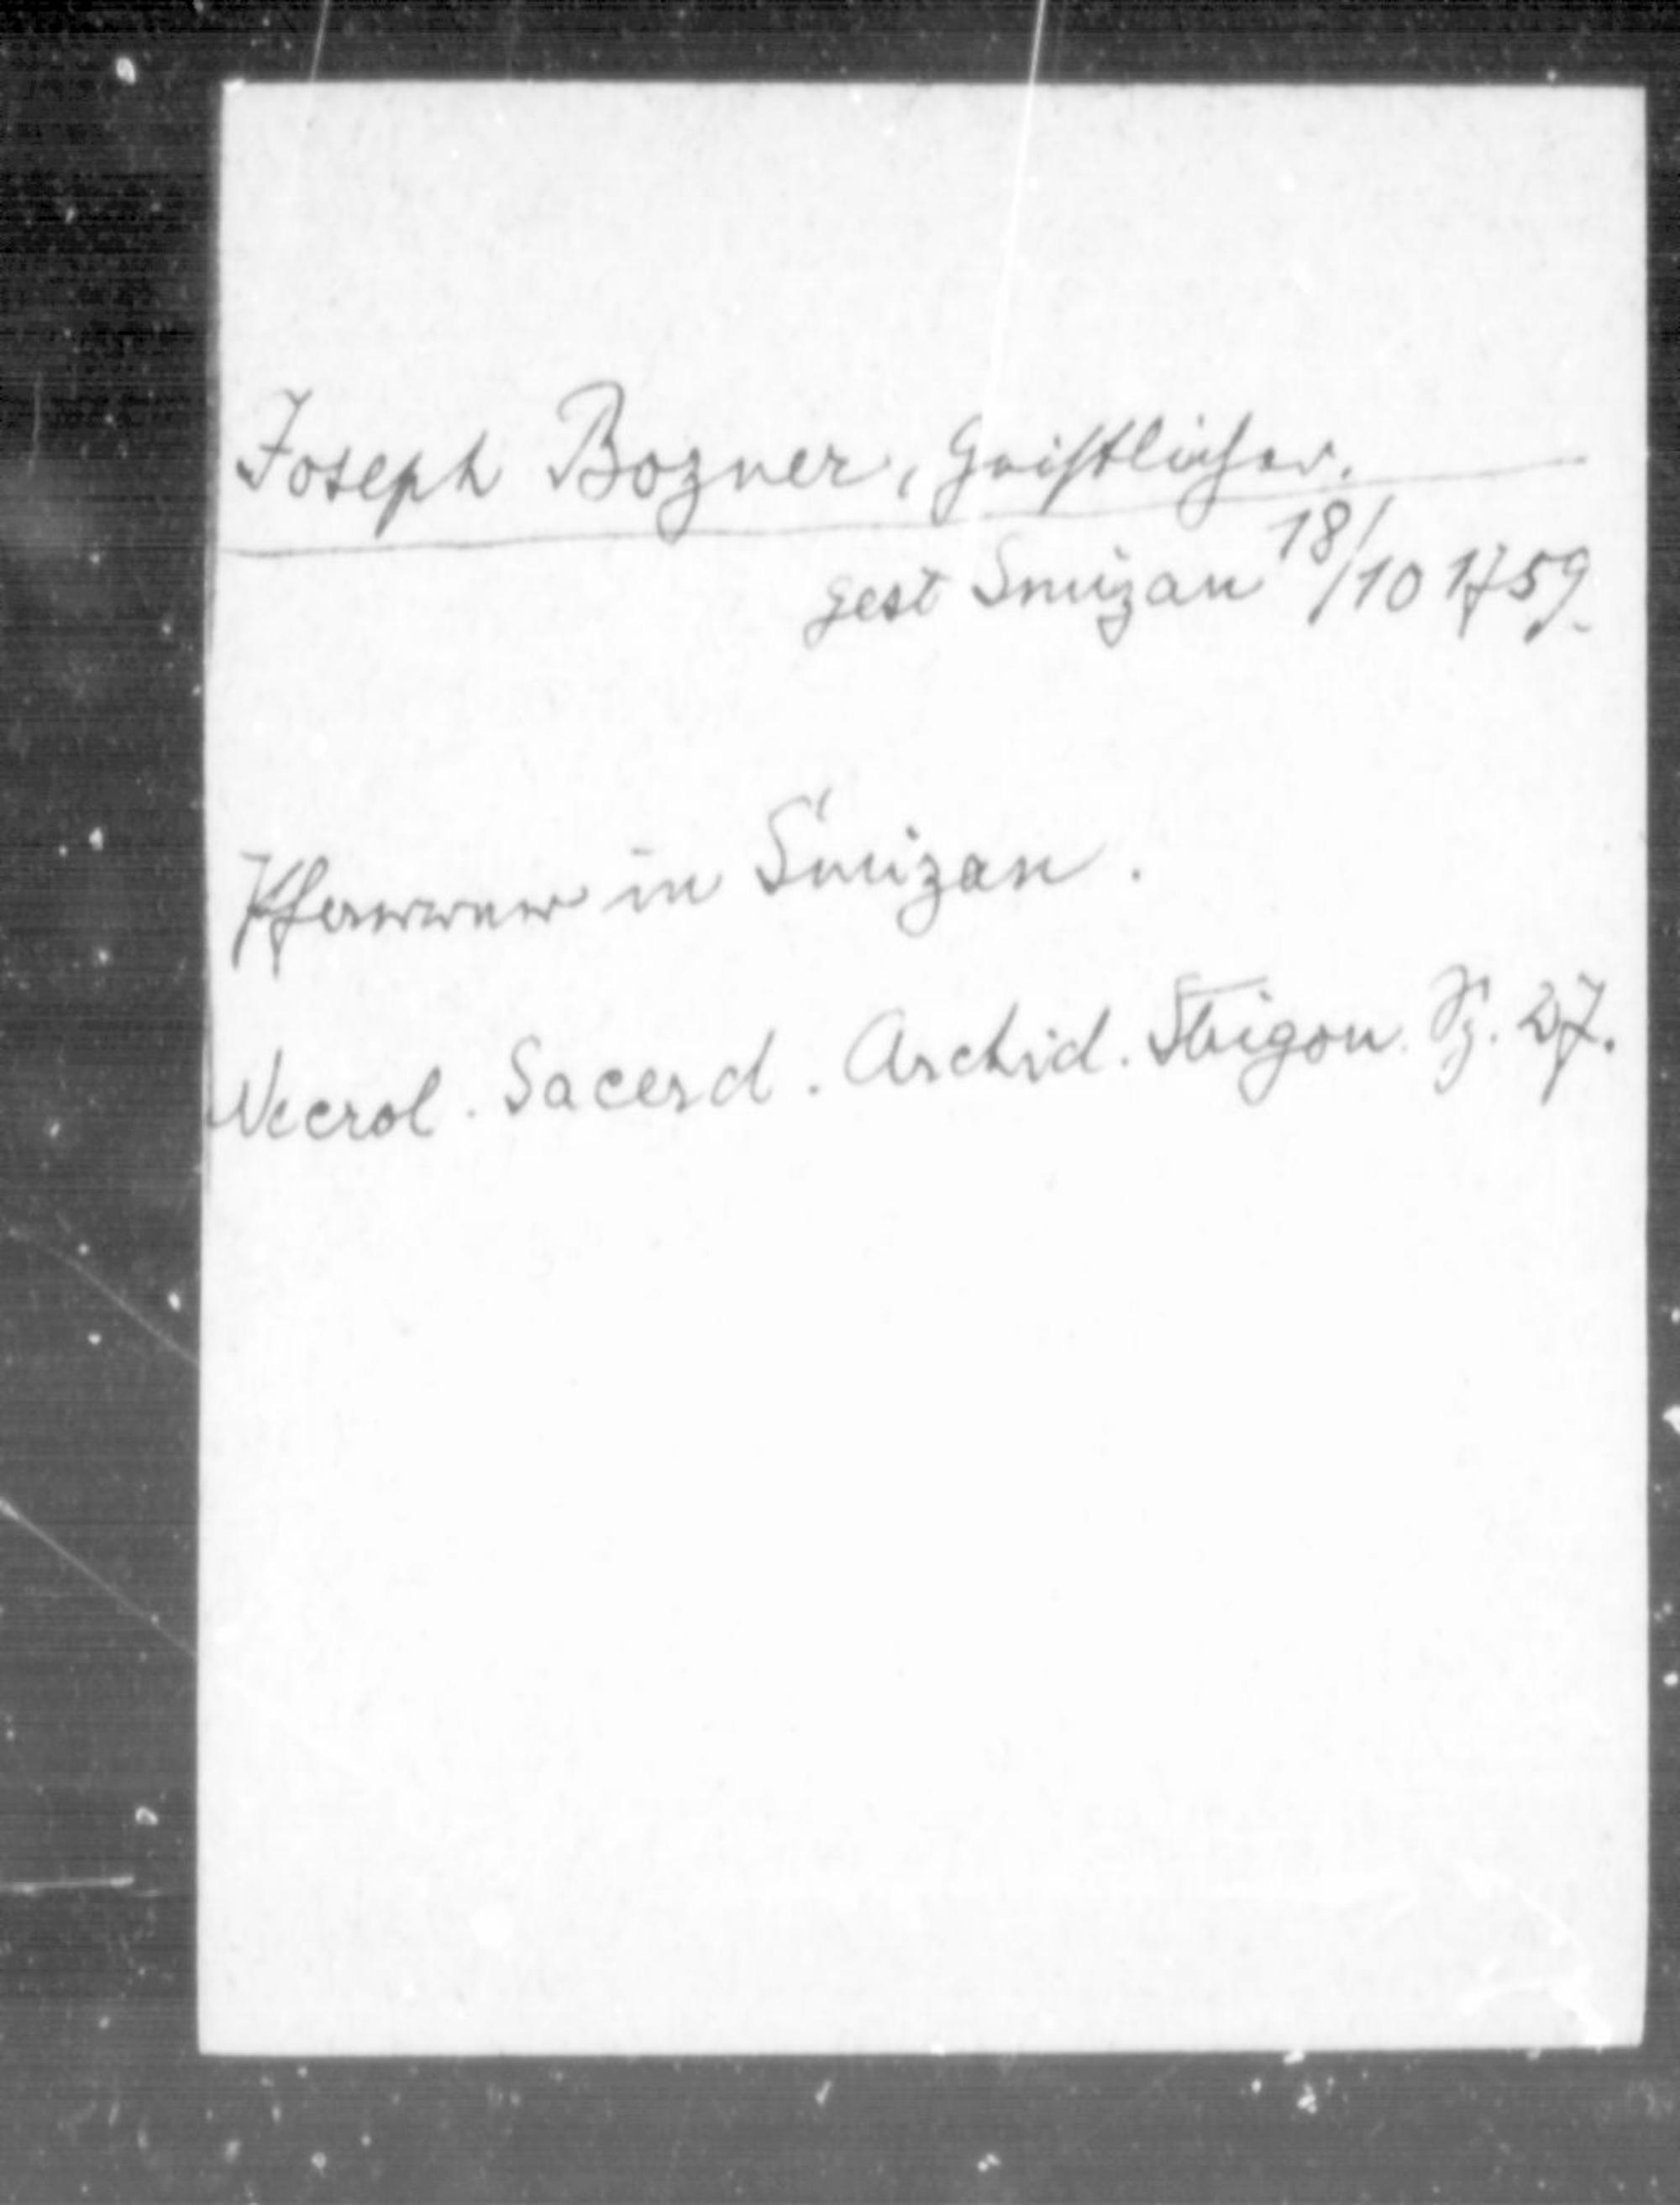 Joseph Bozner, Geistlicher.
gest Smizan 18/10 1759.
Pfarrer in Smizan.
Necrol. Sacerd. Archid. Strigon. S. 27.